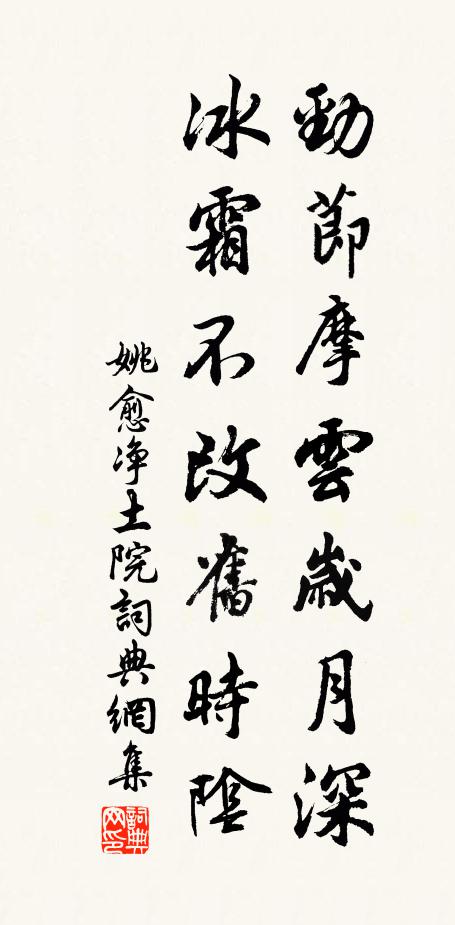 勁節摩雲歲月深
冰霜不改舊時陰
姚愈净土院詞典網集
詞典網印